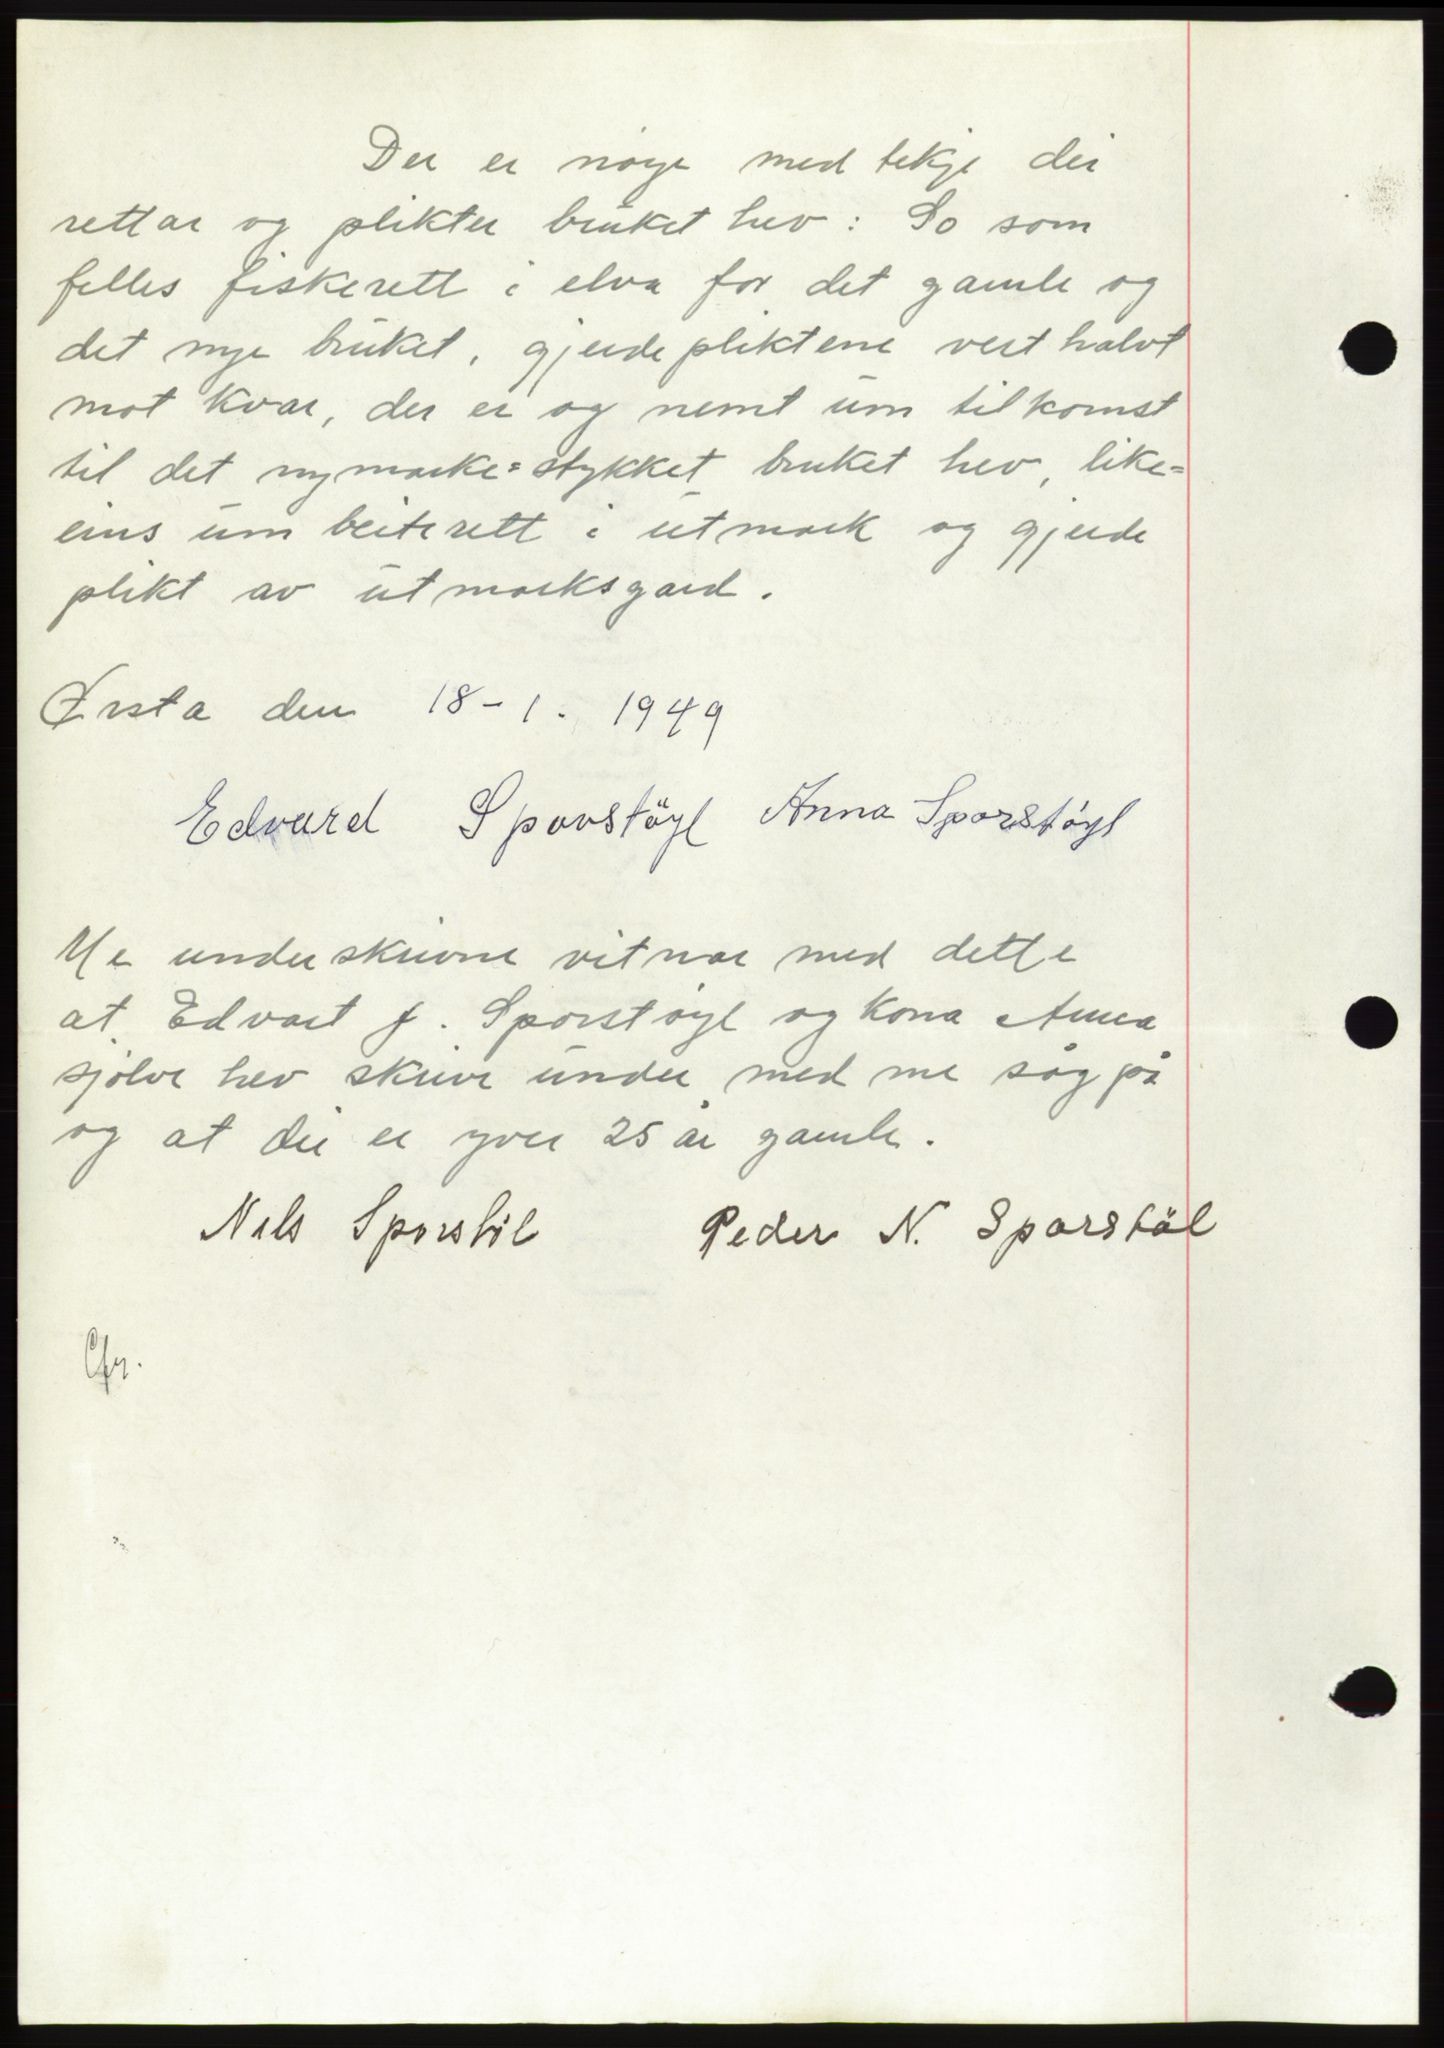 Der er nöye med tekje dei
rettar og plikter bruket hev: So som
felles fiskerett i elva for det gamle og
det nye bruket, gjerdepliktene vert halvt
mot kvar, der er og nemt um tilkomst
til det nymarke=stykket bruket hev, like=
eins um beiterett i utmark og gjerde
plikt av utmarksgard.
Ørsta den 18-1. 1949
Edvard Sporstöyl Anna Sporstöyl
Me underskrivne vitnar med dette
at Edvart J. Sporstøyl og kona Anna
sjölve hev skrive under med me såg på
og at dei er yver 25 år gamle.
Nils Sporstöl Peder N. Sporstöl
Cfr.